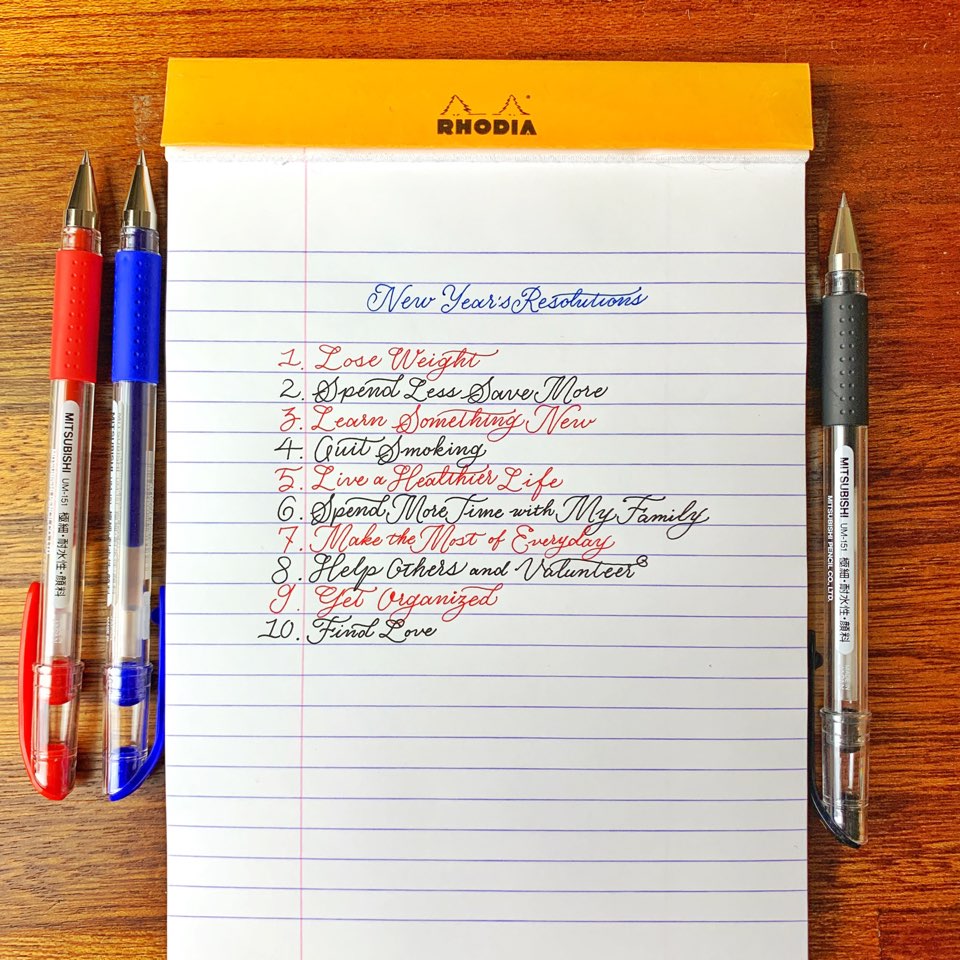 RHODIA
New Year's Resolutions
1. Lose Weight
2. Spend Less Save More
3. Learn Something New
4. Quit Smoking
5. Live a Healthier Life
6. Spend More Time with My Family
7. Make the Most of Everyday
8. Help Others and Volunteer
9. Get Organized
10. Find Love
MITSUBISHI UM-151 極細・耐水性・顔料
MITSUBISHI UM-151 極細・耐水性・顔料
MITSUBISHI PENCIL CO., LTD.